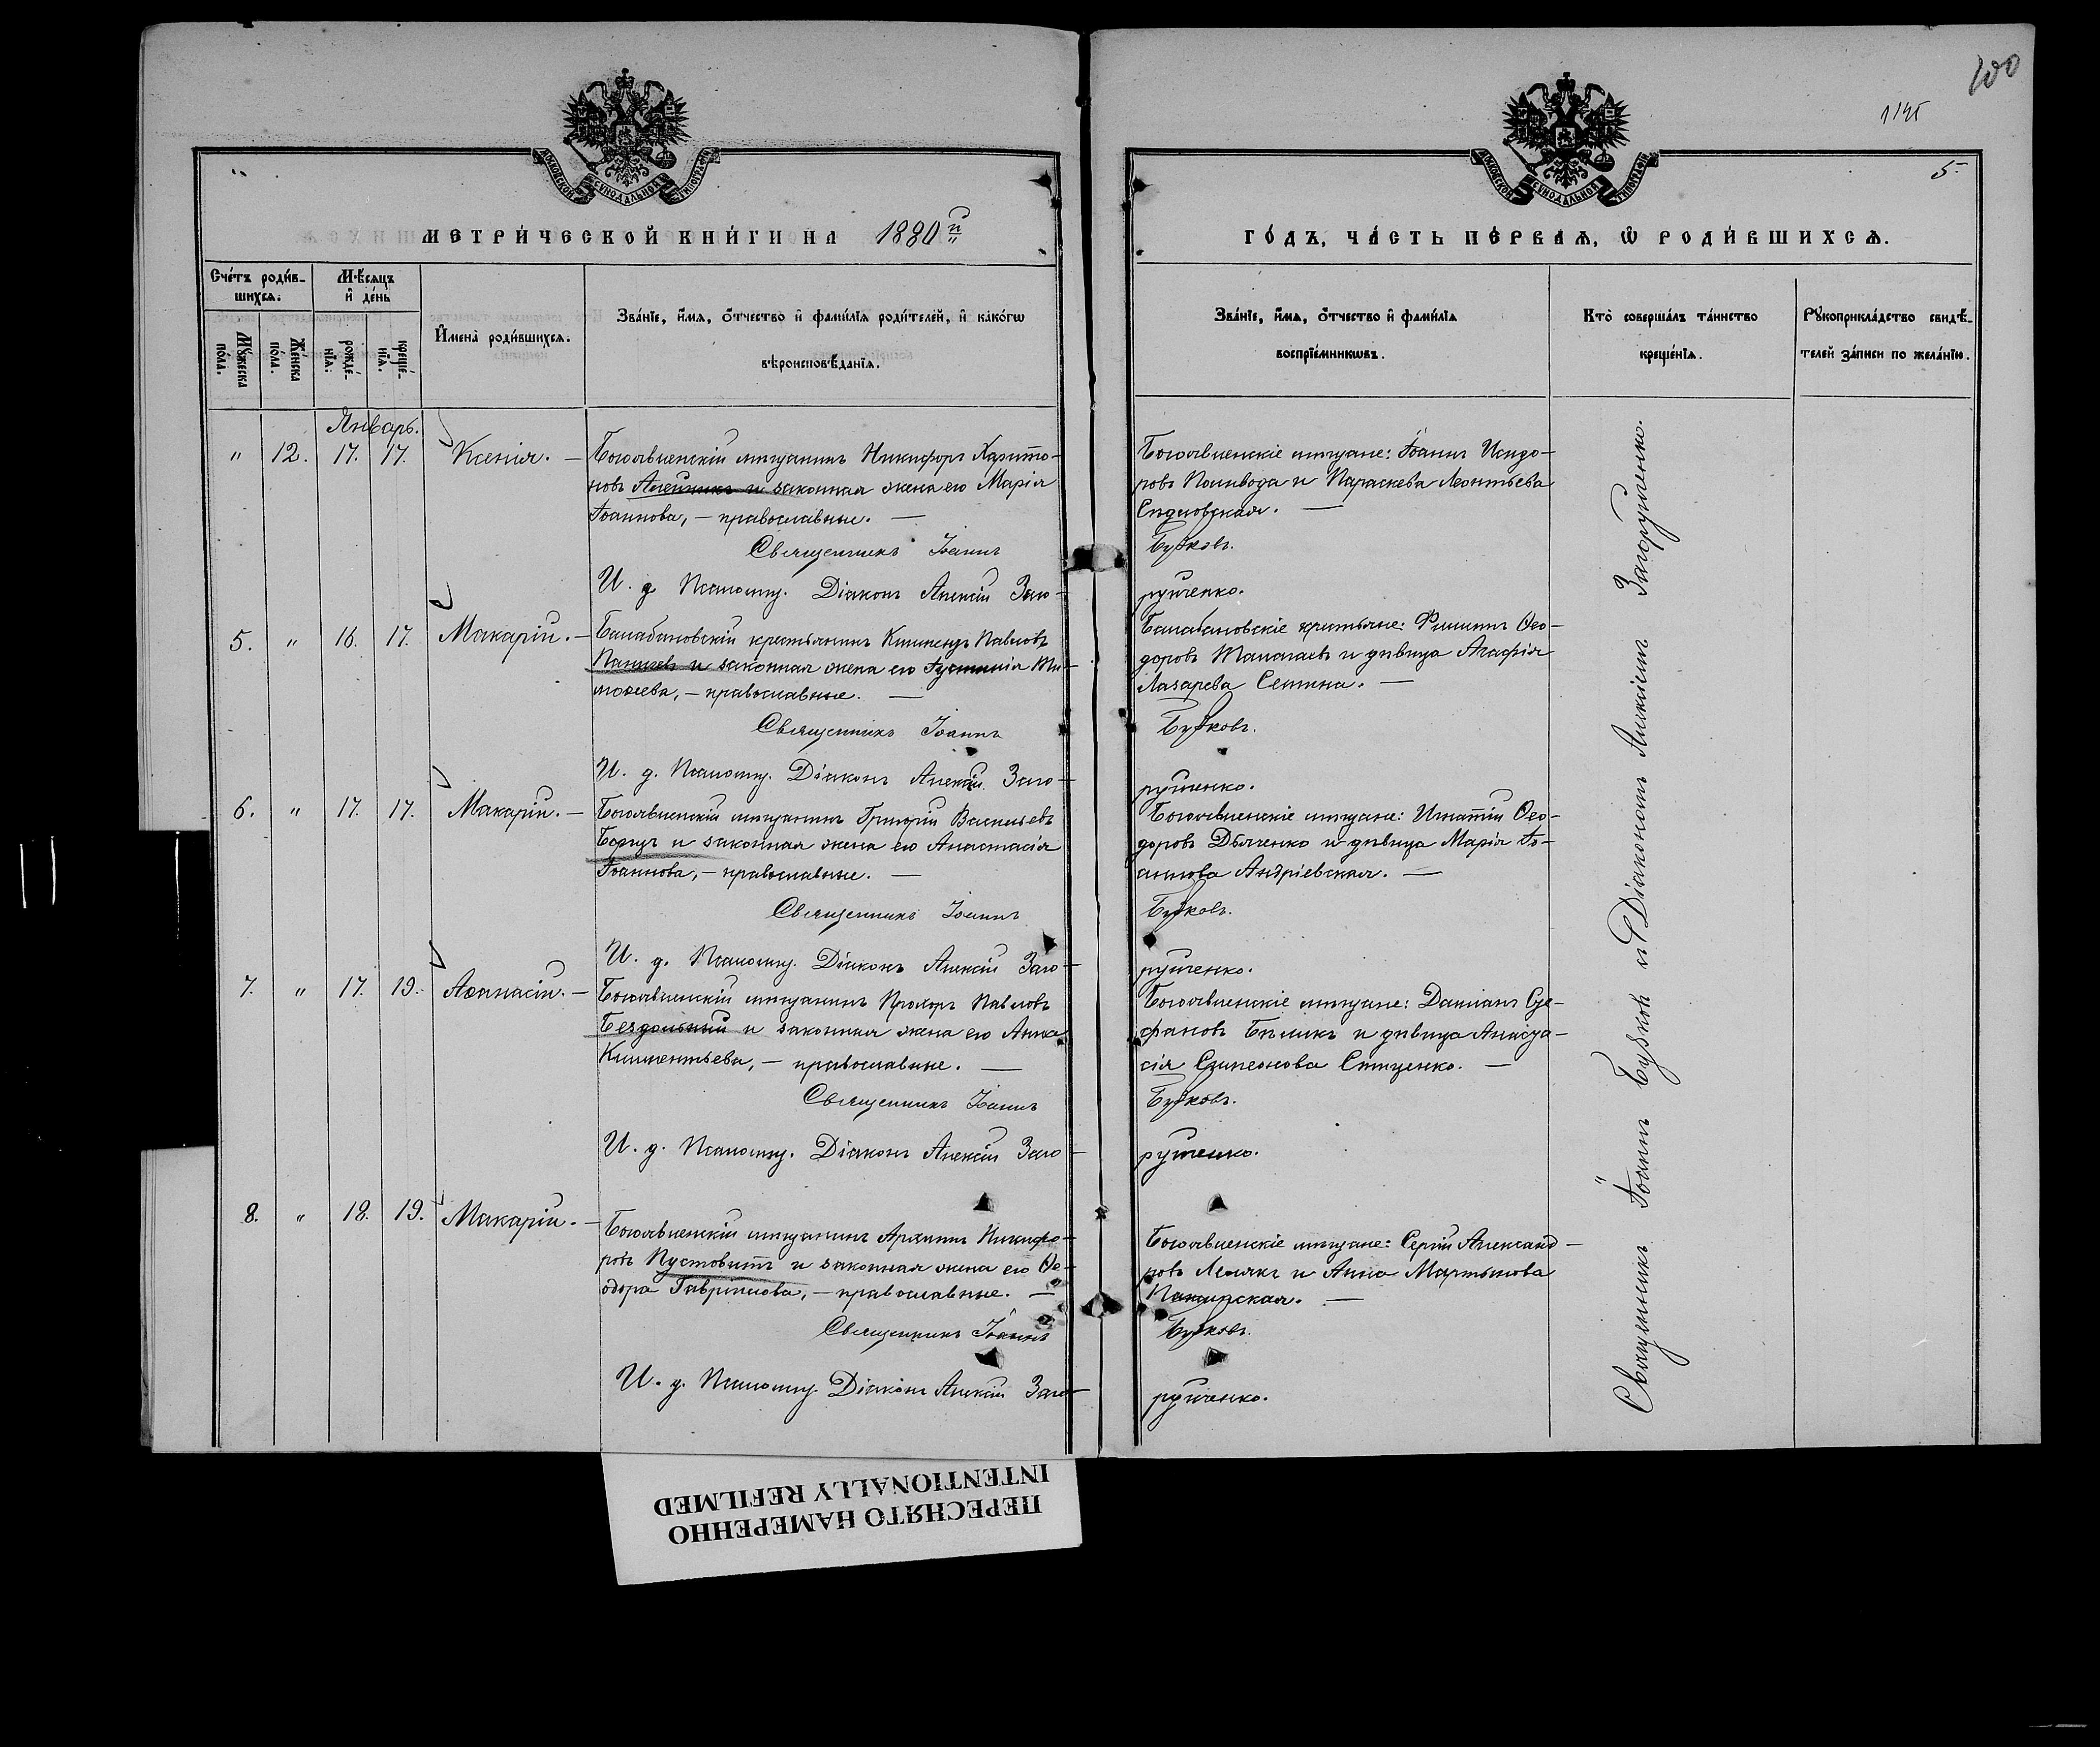 100
1145
5.
МОСКОВСКОЙ СѴНОДАЛЬНОЙ ТИПОГРАФІИ
МОСКОВСКОЙ СѴНОДАЛЬНОЙ ТИПОГРАФІИ
МЕТРИ́ЧЕСКОЙ КНИ́ГИ НА 1880й
ГО́ДЪ, ЧА́СТЬ ПЕ́РВАѦ, Ѡ҆ РОДИ́ВШИХСѦ.
Сче́тъ роди́в-
шихсѧ.
Мѣ́сѧцъ
и҆ де́нь
Мꙋ́жеска по́ла.
Же́нска по́ла.
рожде́-нїѧ.
креще́-нїѧ.
И҆мена̀ роди́вшихсѧ.
Зва́нїе, и҆́мѧ, ѻ҆́тчество и҆ фами́лїѧ роди́телей, и҆ како́гѡ
вѣроисповѣ́данїѧ.
Зва́нїе, и҆́мѧ, ѻ҆́тчество и҆ фами́лїѧ
воспрїе́мникѡвъ.
Кто̀ соверша́лъ та́инство
креще́нїѧ.
Рꙋкоприкла́дство свидѣ́-
телей за́писи по жела́нїю.
Январь.
" 12. 17. 17. Ксенія. — Богоявленскій мѣщанинъ Никифоръ Харито-
новъ Алейникъ и законная жена его Марія
Іоаннова, — православные. —
Священникъ Іоаннъ
И. д. Псаломщ. Діаконъ Алексій Заго-
Богоявленскіе мѣщане: Іоаннъ Исидо-
ровъ Поливода и Параскева Леонтьева
Сѣдловская. —
Бужковъ.
рулченко.
5. " 16. 17. Макарій. — Балабановскій крестьянинъ Климентъ Павловъ
и законная жена его Іустинія Ти-
моѳеева, — православные. —
Священникъ Іоаннъ
И. д. Псаломщ. Діаконъ Алексій Заго-
Балабановскіе крестьяне: Филиппъ Ѳео-
доровъ и дѣвица Агафія
Лазарева Семина. —
Бужковъ.
рулченко.
6. " 17. 17. Макарій. — Богоявленскій мѣщанинъ Григорій Васильевъ
Борщъ и законная жена его Анастасія
Іоаннова, — православные. —
Священникъ Іоаннъ
И. д. Псаломщ. Діаконъ Алексій Заго-
Богоявленскіе мѣщане: Игнатій Ѳео-
доровъ Дьяченко и дѣвица Марія Іо-
аннова Андріевская. —
Бужковъ.
рулченко.
7. " 17. 19. Аѳанасій. — Богоявленскій мѣщанинъ Прохоръ Павловъ
Бездольный и законная жена его Анна
Климентьева, — православные. —
Священникъ Іоаннъ
И. д. Псаломщ. Діаконъ Алексій Заго-
Богоявленскіе мѣщане: Даміанъ Сте-
фановъ Бѣликъ и дѣвица Анаста-
сія Симеонова —
Бужковъ.
рулченко.
8. " 18. 19. Макарій. — Богоявленскій мѣщанинъ Архипъ Никифо-
ровъ Пустовитъ и законная жена его Ѳе-
одора Гавріилова, — православные. —
Священникъ Іоаннъ
И. д. Псаломщ. Діаконъ Алексій Заго-
Богоявленскіе мѣщане: Сергій Александ-
ровъ и Анна Мартынова
Бужковъ.
рулченко.
Священникъ Іоаннъ Бужковъ и Діаконъ Алексій Загорулченко.
ПЕРЕСНЯТО НАМЕРЕННО
INTENTIONALLY REFILMED